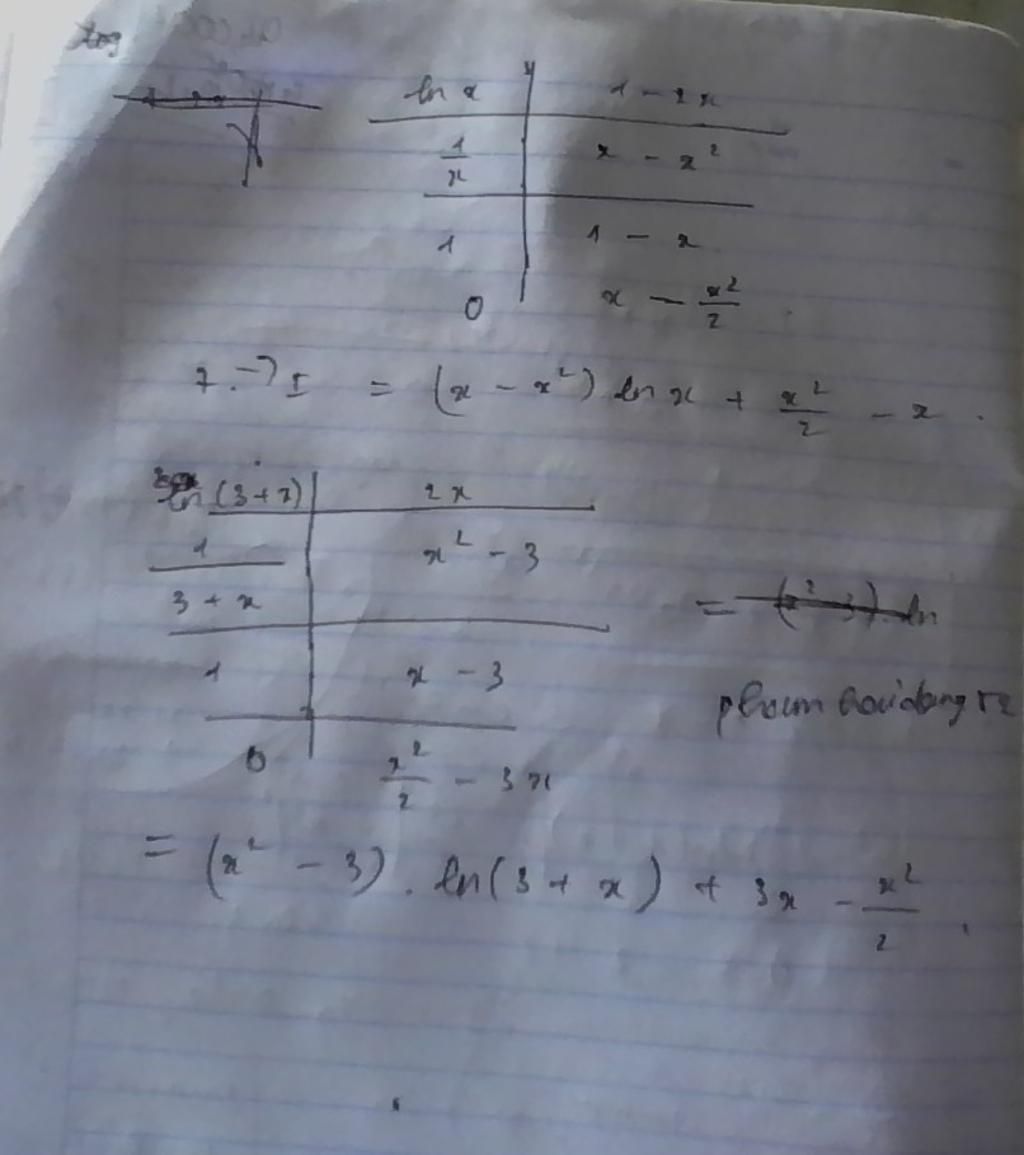 ln x | 1 - 2x
1/x | x - x²
1 | 1 - x
0 | x - x²/2
7. → I = (x - x²) ln x + x²/2 - x.
ln (3+x) | 2x
1/(3 + x) | x² - 3
1 | x - 3
0 | x²/2 - 3x
= (x² - 3). ln(3 + x) + 3x - x²/2.